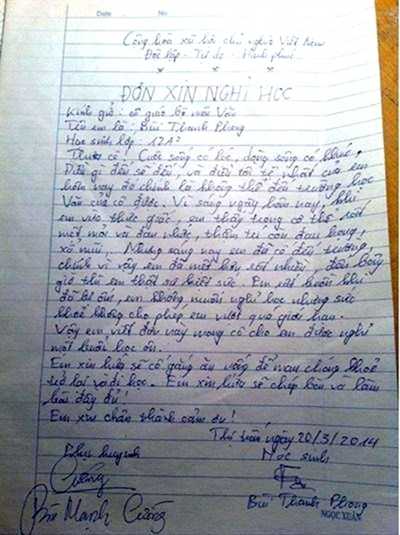 Date No
Cộng hòa xã hội chủ nghĩa Việt Nam
Độc lập - Tự do - Hạnh phúc
ĐƠN XIN NGHỈ HỌC
Kính gửi: cô giáo bộ môn Văn
Tên em là: Bùi Thanh Phong
Học sinh lớp: 12A2
Thưa cô! Cuộc sống có lúc, dòng sông có khúc.
Điều gì đến sẽ đến, và điều tồi tệ nhất của em
hôm nay đó chính là không thể đến trường học
Văn của cô được. Vì sáng ngày hôm nay, khi
em vừa thức giấc, em thấy trong cơ thể rất
mệt mỏi và đau nhức, thêm tí cơn đau bụng,
xổ mũi,. Nhưng sáng nay em đã cố đến trường,
chính vì vậy em đã mệt hơn rất nhiều, đến bây
giờ thì em thật sự kiệt sức. Em rất buồn khi
đã bị ốm, em không muốn nghỉ học nhưng sức
khoẻ không cho phép em vượt quá giới hạn.
Vậy em viết đơn này mong cô cho em được nghỉ
một buổi học ôn.
Em xin hứa sẽ cố gắng ăn uống để mau chóng khoẻ
trở lại và đi học. Em xin hứa sẽ chép bài và làm
bài đầy đủ!
Em xin chân thành cảm ơn!
Thứ năm ngày 20/3/2014
Phụ huynh Học sinh
Cường
Bùi Mạnh Cường Bùi Thanh Phong
NGỌC XUÂN